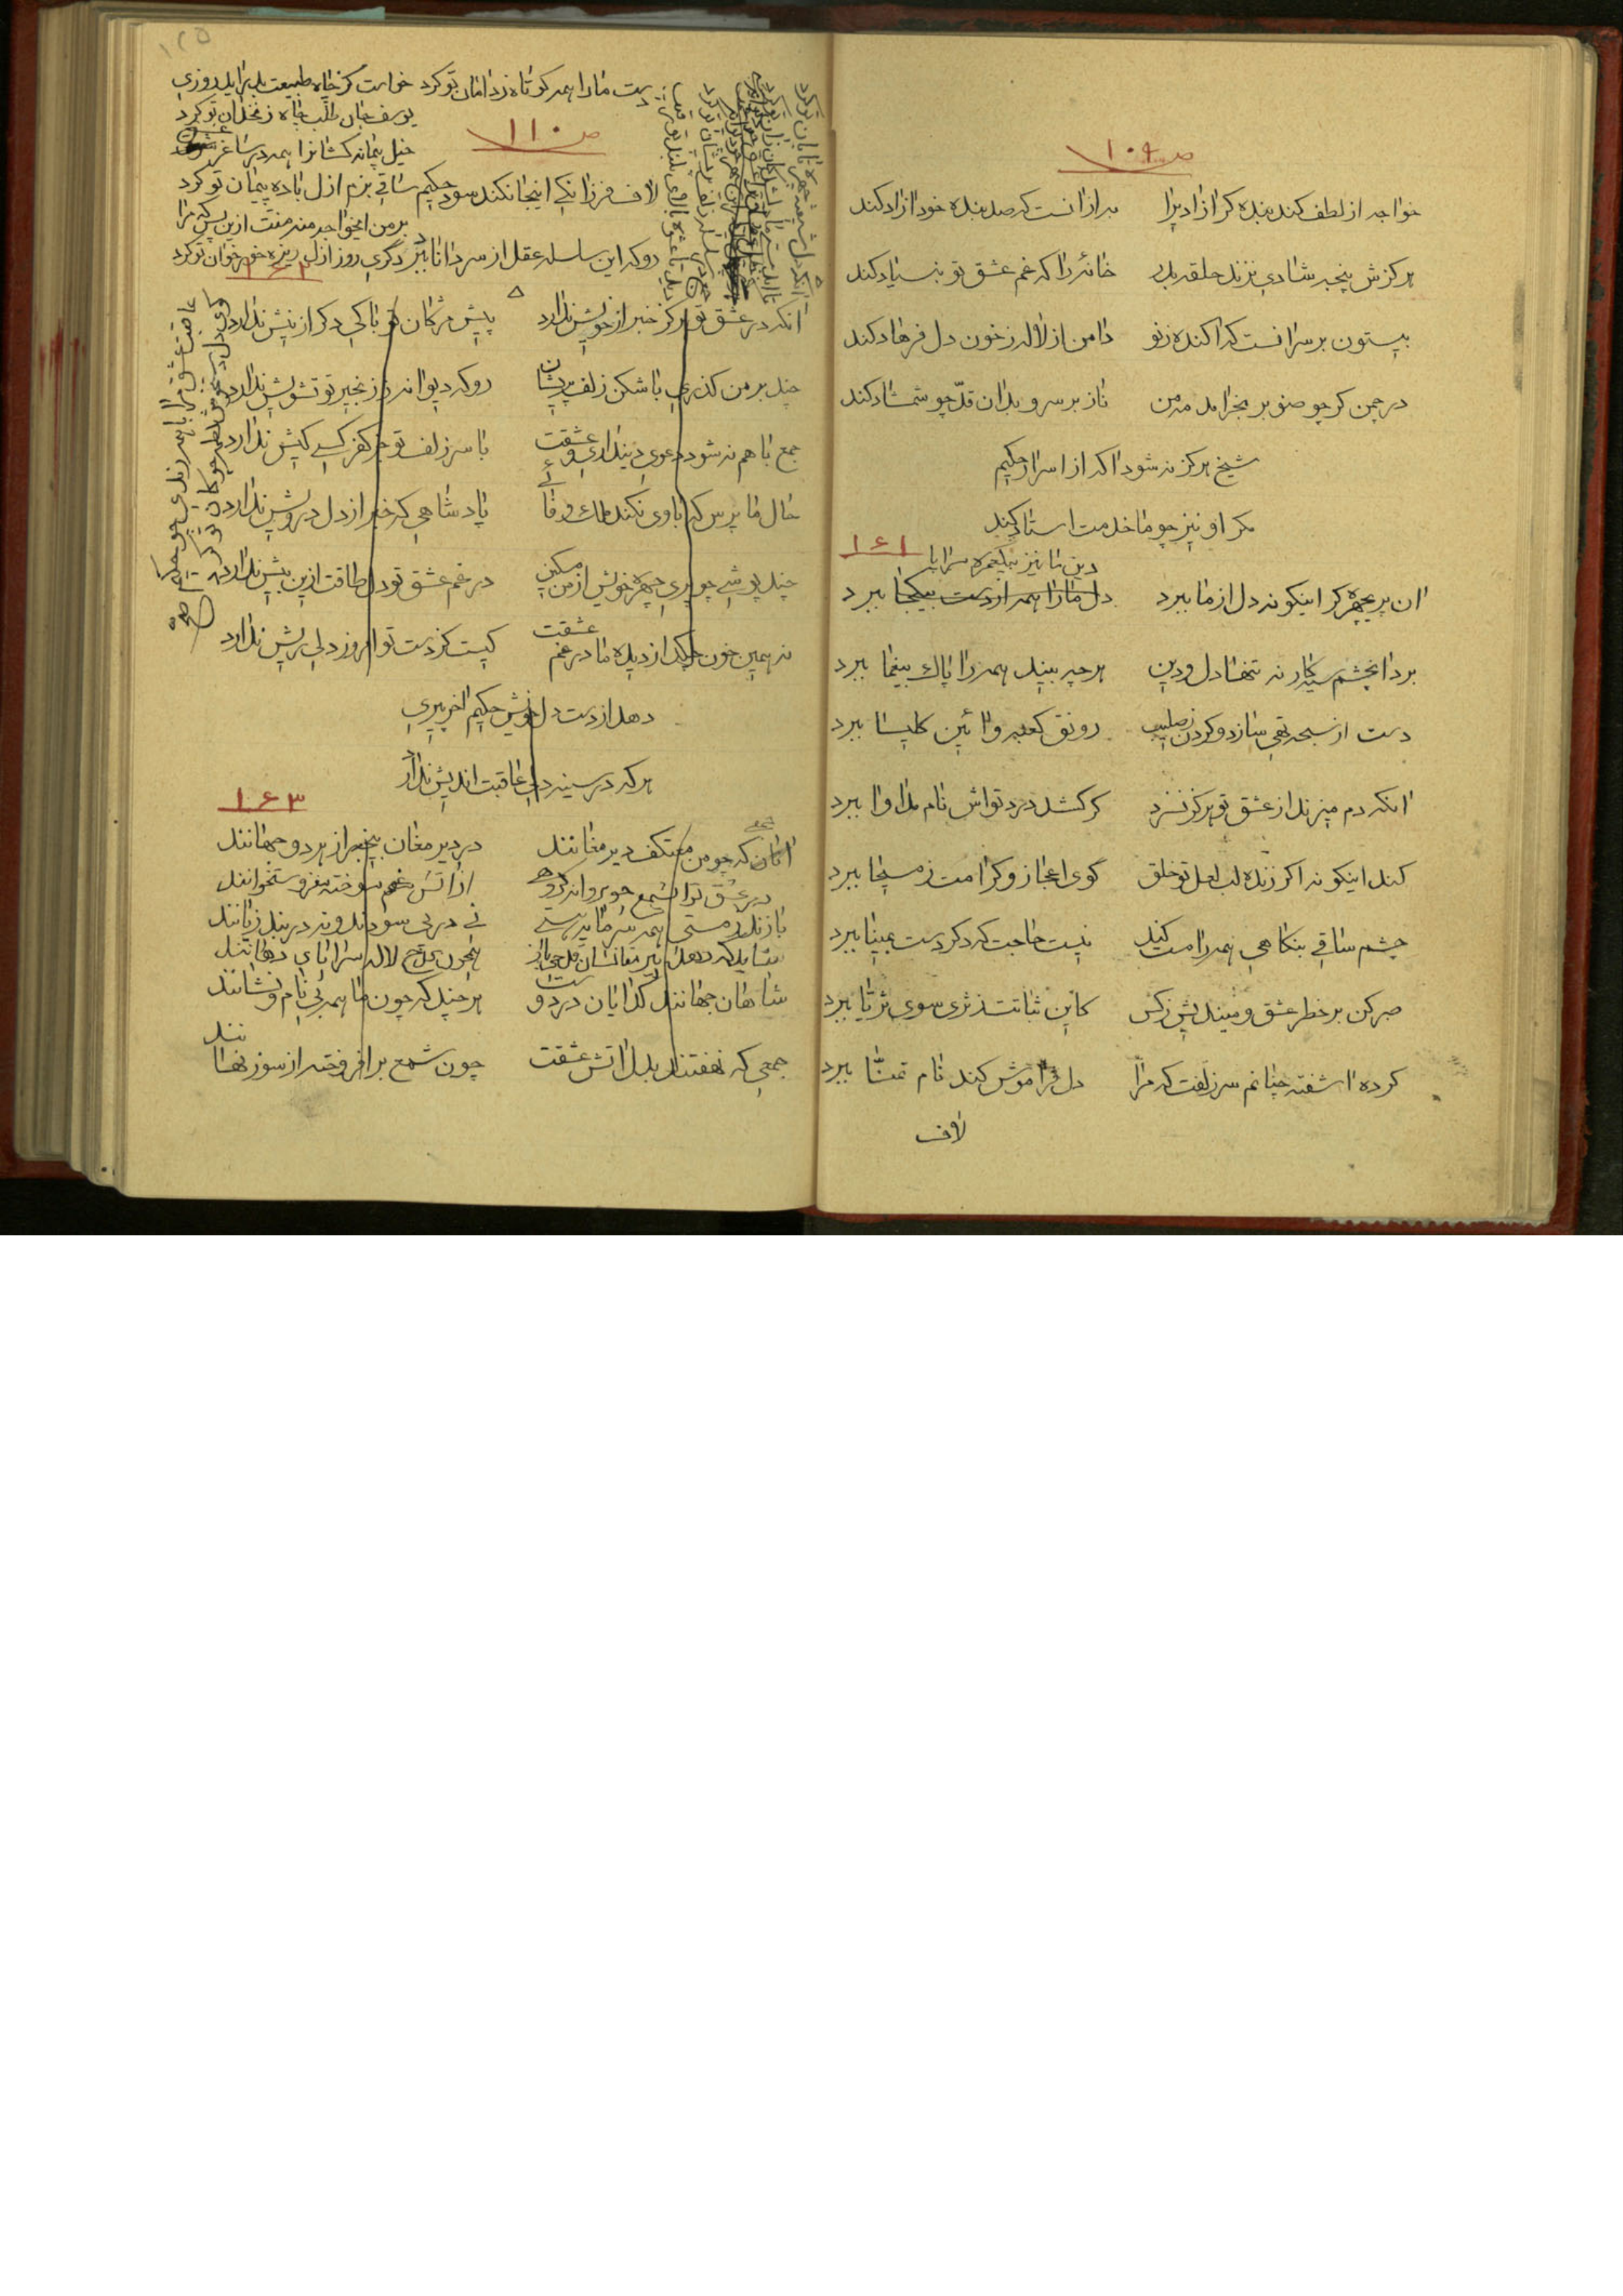 ص ۱۰۹
خواجه از لطف کند بنده کر ازادیرا به از انست که صد بنده خود ازاد کند
هرکزش پنجه شادی نزند حلقه بدر خانهٔ را که غم عشق تو بنیاد کند
بیستون بر سر انست که اکنده ز نو دامن از لاله ز خون دل فرهاد کند
در چمن کر چو صنوبر بخرامد مه من ناز بر سرو بدان قدّ چو شمشاد کند
شیخ هرکز نه شود اکه از اسرار حکیم
مکر او نیز چو ما خدمت استاد کند
۱۶۱
دین ما نیز بیکعمره سراپا
ان پریچهره کر اینکونه دل از ما ببرد دل ما را همه از دست بیکجا ببرد
برد انچشم سیه کار نه تنها دل و دین هر چه بیند همه را پاک بیغما ببرد
دست از سبحه تهی سازد و کردن ز صلیب رونق کعبه و ائین کلیسا ببرد
انکه دم میزند از عشق تو هرکز نسزد کر کشد درد تو اش نام مداوا ببرد
کند اینکونه اکر زنده لب لعل تو خلق کوی اعجاز و کرامت ز مسیحا ببرد
چشم ساقی بنکاهی همه را مست کند نیست حاجت که دکر دست بمینا ببرد
صبر کن بر خطر عشق و میندیش ز کس کاین ثباتت ز ثری سوی ثریا ببرد
کرده اشفته چنانم سر زلفت که مرا دل فراموش کند نام تمنّا ببرد
لاف
۱۲۵
دست ما را همه کوتاه ز دامان تو کرد خواست کز چاه طبیعت بدر اید روزی
یوسف جان طلب چاه زنخدان تو کرد
ص ۱۱۰
خیل پیمانه کشانرا همه در ساغر عشق
لاف فرزانکی اینجا نکند سود حکیم ساقی بزم ازل باده پیمان تو کرد
بر من ایخواجه منه منت ازین پس که مرا
رو که این سلسله عقل از سر دانا ببرد دکری روز ازل ریزه خور خوان تو کرد
۱۶۲
انکه در عشق تو هرکز خبر از خویش ندارد پیش مژکان تو باکی دکر از نیش ندارد
چند بر من کذری با شکن زلف پریشان رو که دیوانه ز زنجیر تو تشویش ندارد
جمع با هم نه شود دعوی دینداری و عشقت با سر زلف تو جز کفر کسی کیش ندارد
حال ما پرس که باوی نکند ملک وفائی پادشاهی که خبر از دل درویش ندارد
چند پوشی چو پری چهره خویش از من مسکین در غم عشق تو دل طاقت ازین بیش ندارد
نه همین خون چکد از دیده ما در غم عشقت کیست کز دست تو امروز دلی ریش ندارد
دهد از دست دل خویش حکیم اخر پیری
هر که در سینه دلی عاقبت اندیش ندارد
۱۶۳
انان که چو من معتکف دیر مغانند در دیر مغان بیخبر از هر دو جهانند
در عشق تو ای شمع چو پروانه کروهی از اتش غم سوخته مغز و ستخوانند
بازند ز مستی همه سرمایه هستی نی در پی سودند و نه در بند زیانند
شاید که دهد پیر مغانشان قدحی باز همچون قدح لاله سراپای دهانند
شاهان جهانند کدایان در دوست هر چند که چون ما همه بی نام و نشانند
جمعی که نهفتند بدل اتش عشقت چون شمع بر افروخته از سوز نهانند